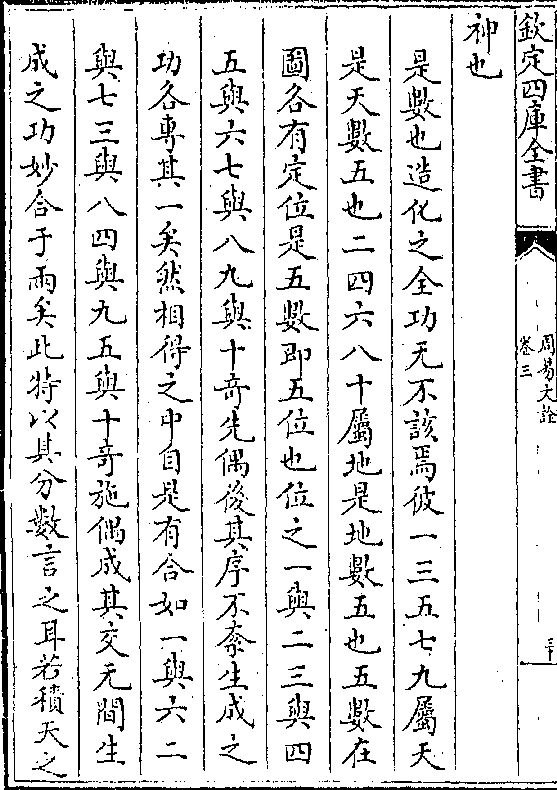 欽定四庫全書
周易文詮
卷三
三十
神也
是數也造化之全功无不該焉彼一三五七九屬天
是天數五也二四六八十屬地是地數五也五數在
圖各有定位是五數即五位也位之一與二三與四
五與六七與八九與十竒先偶後其序不紊生成之
功各專其一矣然相得之中自是有合如一與六二
與七三與八四與九五與十竒施偶成其交无間生
成之功妙合于兩矣此特以其分數言之耳若積天之